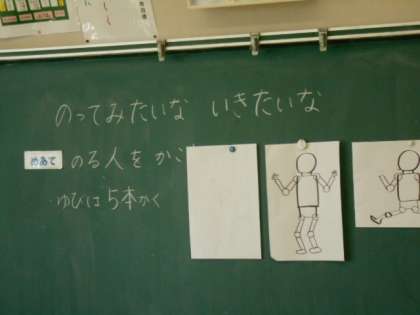 のってみたいな いきたいな
めあて のる人を か
・ゆびは5本かく